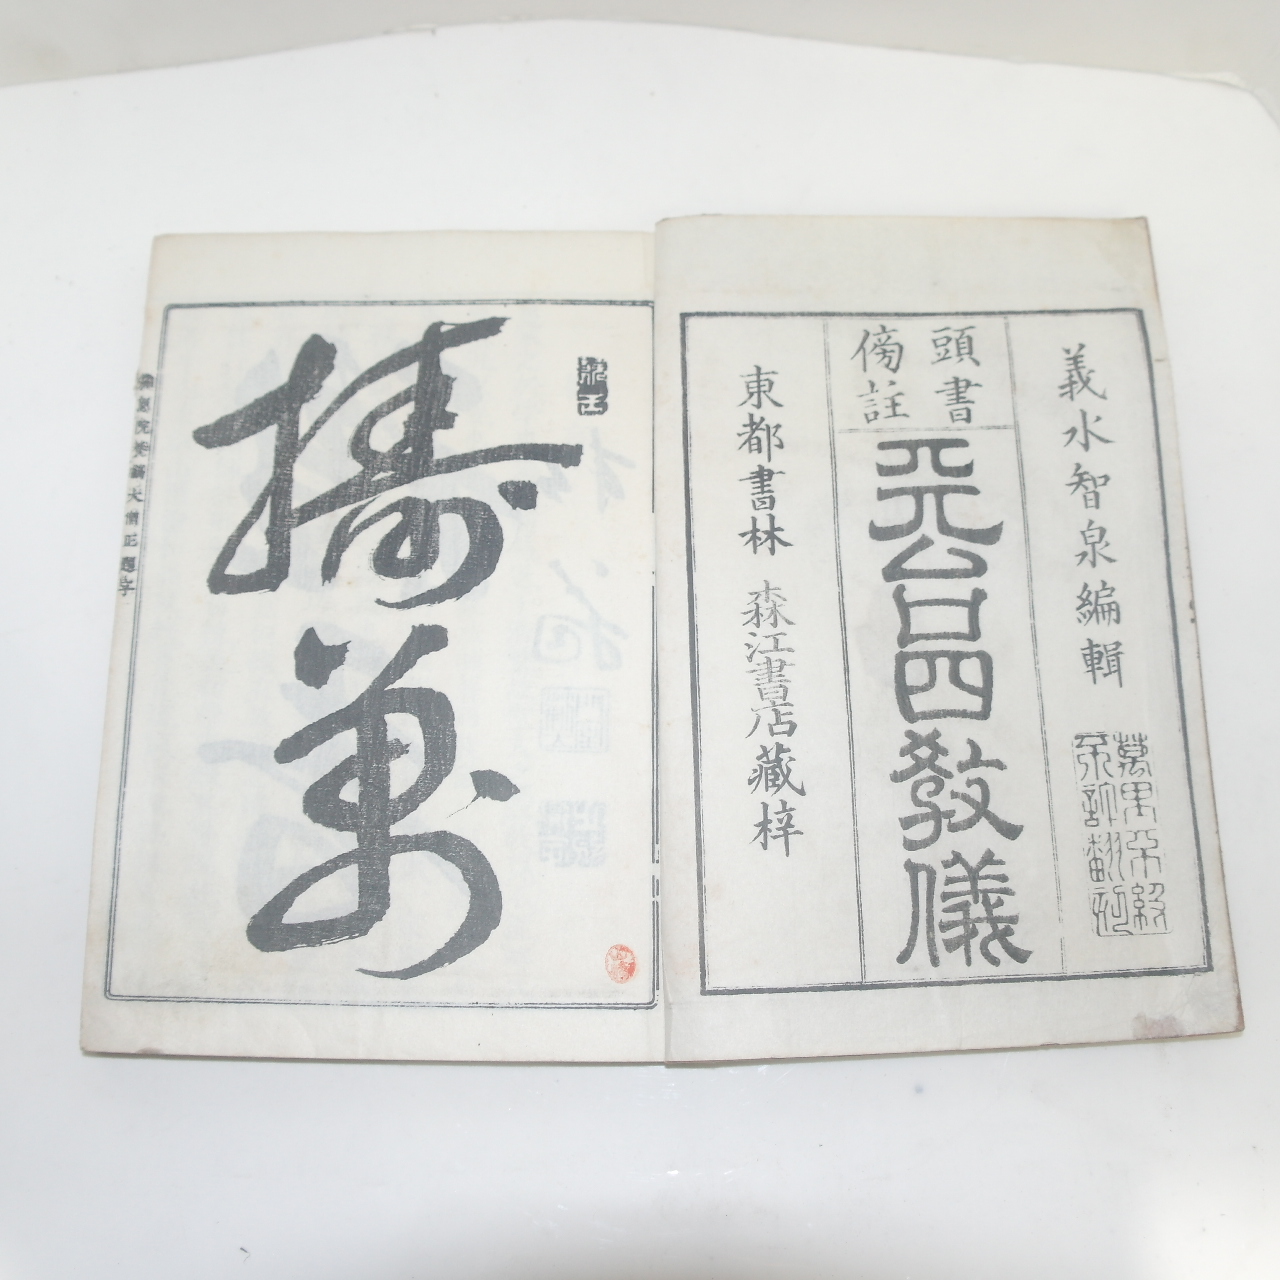 義水智泉編輯
頭書
傍註
天台四教儀
東都書林 森江書店藏梓
萬
大僧正題字